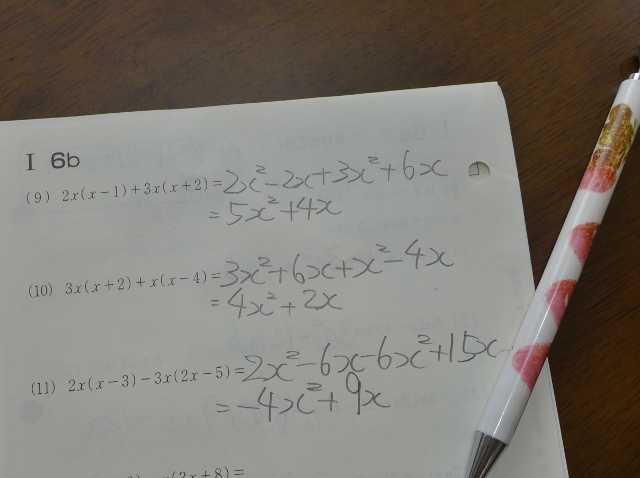 I 6b
(9) 2x(x-1)+3x(x+2)=2x²-2x+3x²+6x
=5x²+4x
(10) 3x(x+2)+x(x-4)=3x²+6x+x²-4x
=4x²+2x
(11) 2x(x-3)-3x(2x-5)=2x²-6x-6x²+15x
=-4x²+9x